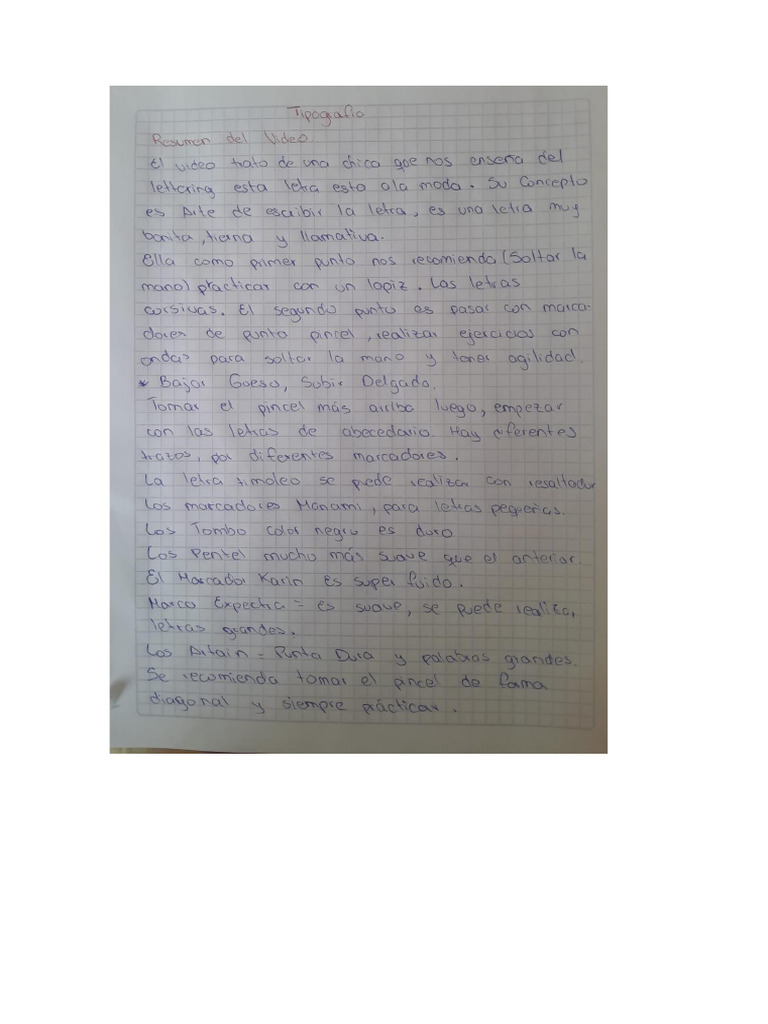 Tipografia
Resumen del Video
El video trato de una chica que nos enseña del
lettering esta letra esta a la moda. Su Concepto
es Arte de escribir la letra, es una letra muy
bonita, tierna y llamativa.
Ella como primer punto nos recomienda (Soltar la
mano) practicar con un lapiz. Las letras
cursivas. El segundo punto es pasar con marca-
dores de punto pincel, realizar ejercicios con
ondas para soltar la mano y tener agilidad.
* Bajar Gueso, Subir Delgado.
Tomar el pincel más arriba luego, empezar
con las letras de abecedario. Hay diferentes
trazos, por diferentes marcadores.
La letra timoleo se puede realizar con resaltador
Los marcadores Monami, para letras pequeñas.
Los Tombo color negro es duro
Los Pentel mucho más suave que el anterior.
El Marcador Karin es super fuido.
Marca Expectra = es suave, se puede realizar
letras grandes.
Los Artain = Punta Dura y palabras grandes.
Se recomienda tomar el pincel de forma
diagonal y siempre prácticar.